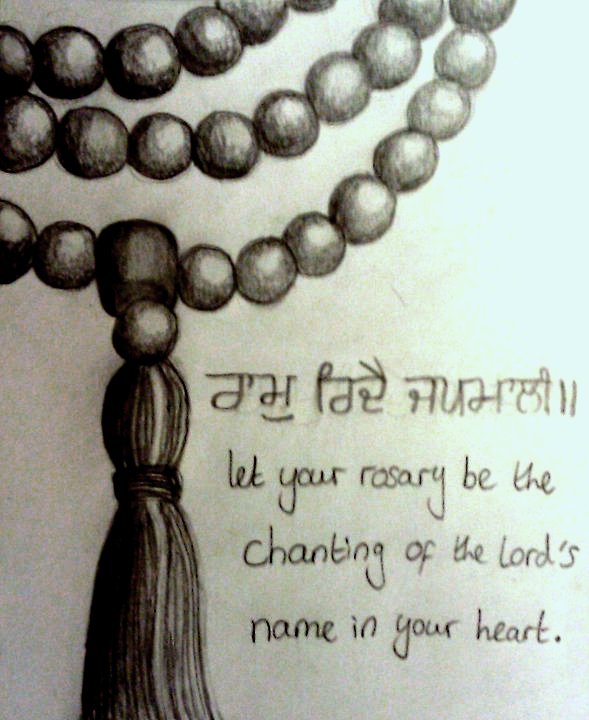 ਰਾਮੁ ਰਿਦੈ ਜਪਮਾਲੀ॥
let your rosary be the
chanting of the Lord's
name in your heart.